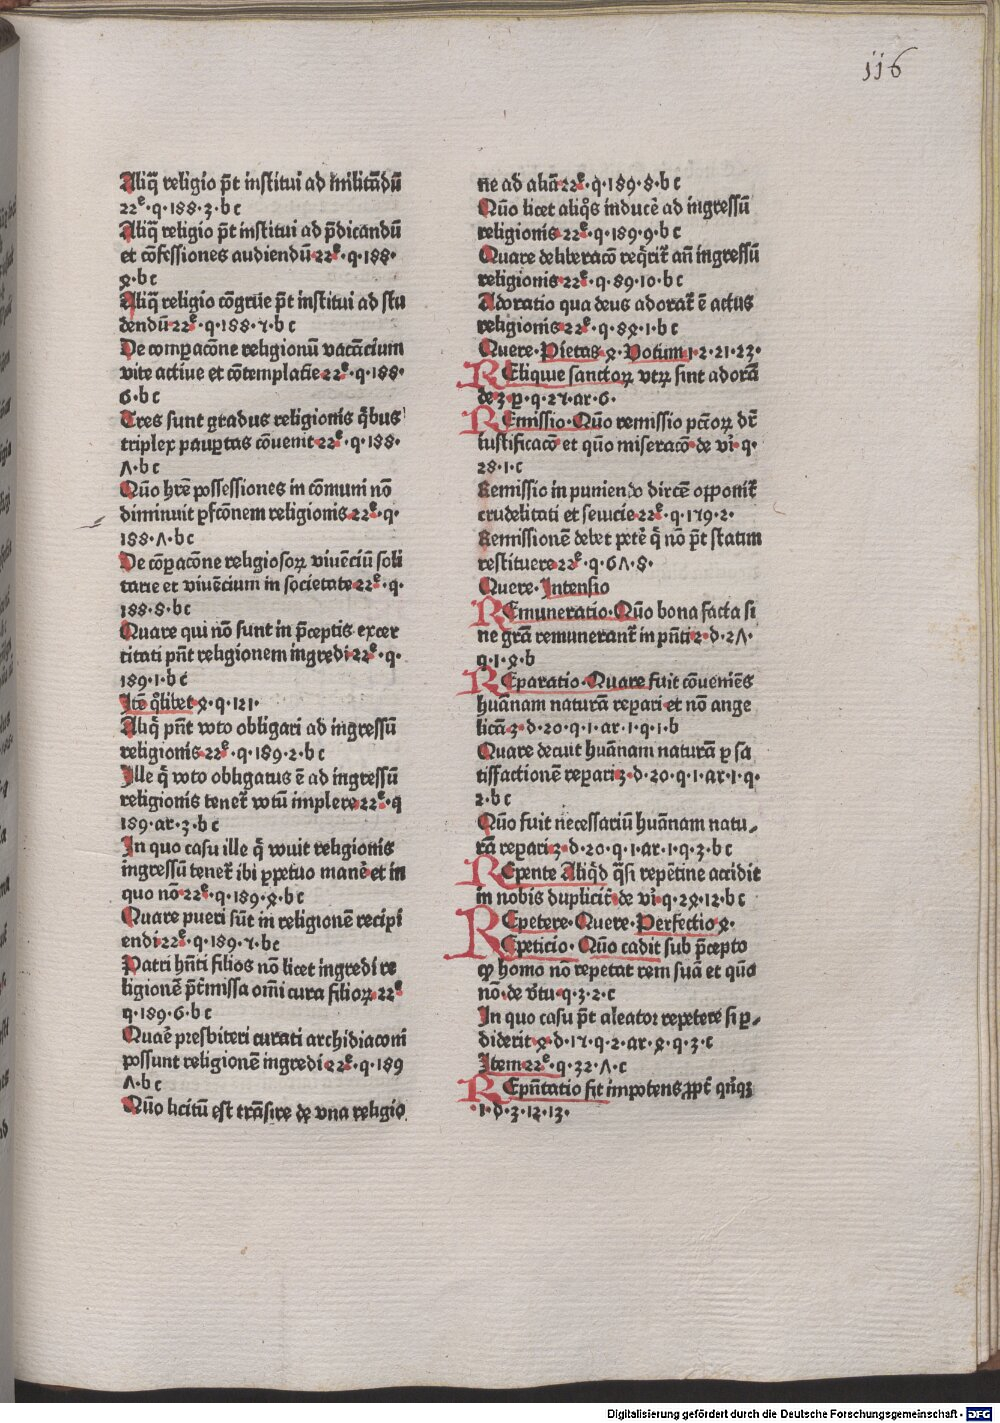 116
Aliq̄ religio p̄t institui ad militādū
22ᵉ·q·188·3·b c
Aliq̄ religio p̄t institui ad p̄dicandū
et cōfessiones audiendū·22ᵉ·q·188·
ꝝ·b c
Aliq̄ religio cōgrue p̄t institui ad stu
dendū·22ᵉ·q·188·7·b c
De comꝑacōne religionū vacāncium
vite actiue et cōtemplatie·22ᵉ·q·188·
6·b c
Tres sunt gradus religionis q̄bus
triplex pauꝑtas cōuenit·22ᵉ·q·188·
Λ·b c
Quō hr̄e possessiones in cōmuni nō
diminuit ꝑfcōnem religionis·22ᵉ·q·
188·Λ·b c
De cōꝑacōne religiosoꝝ viuēciū soli
tarie et viuēncium in societate·22ᵉ·q·
188·8·b c
Quare qui nō sunt in p̄ceptis exer
titati pn̄t religionem ingredi·22ᵉ·q·
189·1·b c
Itē q̄libet ꝝ·q·121·
Aliq̄ pn̄t voto obligari ad ingressū
religionis·22ᵉ·q·189·2·b c
Ille q̄ voto obligatus ē ad ingressū
religionis tenet᷑ votū implere·22ᵉ·q
189·ar·3·b c
In quo casu ille q̄ vouit religionis
ingressū tenet᷑ ibi ꝑpetuo manē·et in
quo nō·22ᵉ·q·189·ꝝ·b c
Quare pueri sūt in religionē recipi
endi·22ᵉ·q·189·7·b c
Patri hn̄ti filios nō licet ingredi re
ligionē p̄t̄missa om̄i cura filioꝝ·22ᵉ
q·189·6·b c
Quaē presbiteri curati archidiaconi
possunt religionē ingredi·22ᵉ·q·189
Λ·b c
Quō licitū est trāsire de vna religio
ne ad aliā·22ᵉ·q·189·8·b c
Quō licet aliq̊s inducē ad ingressū
religionis·22ᵉ·q·189·9·b c
Quare deliberacō req̄rit᷑ an̄ ingressū
religionis·22ᵉ·q·89·10·b c
Adoratio qua deus adorat᷑ ē actus
religionis·22ᵉ·q·8ꝝ·1·b c
Quere·Pietas ꝝ·Votum·1·2·21·23·
RElique sanctoꝝ vtꝝ sint adorā
de·3·p·q·27·ar·6·
REmissio·Quō remissio pctōꝝ dr̄
iustificacō et quō miseracō·de vi̇·q·
28·1·c
Remissio in puniendo dircē opponit᷑
crudelitati et seuicie·22ᵉ·q·179·2·
Remissionē debet petē q̄ nō p̄t statim
restituere·22ᵉ·q·6Λ·8·
Quere·Intensio
REmuneratio·Quō bona facta si
ne grā remunerant᷑ in pn̄ti·2·d·2Λ·
q·1·ꝝ·b
REparatio·Quare fuit cōueniēs
huānam naturā repari et nō ange
licā·3·d·20·q·1·ar·1·q·1·b
Quare decuit huānam naturā ꝑ sa
tisfactionē repari·3·d·20·q·1·ar·1·q·
2·b c
Quō fuit necessariū huānam natu⸗
rā repari·3·d·20·q·1·ar·1·q·3·b c
REpente Aliq̄d q̄si repētine accidit
in nobis duplicit᷑·de vi̇·q·2ꝝ·12·b c
REpetere·Quere·Perfectio ꝝ·
REpeticio·Quō cadit sub p̄cepto
ꝙ homo nō repetat rem suā et quō
nō·de v̄tu·q·3·2·c
In quo casu p̄t aleator repetere si ꝑ⸗
diderit·ꝝ·d·17·q·2·ar·ꝝ·q·3·c
Item·22ᵉ·q·32·Λ·c
REpn̄tatio fit impotens ꝓpt᷑ qn̄qꝫ
·1·d·3·12·13·
Digitalisierung gefördert durch die Deutsche Forschungsgemeinschaft - DFG